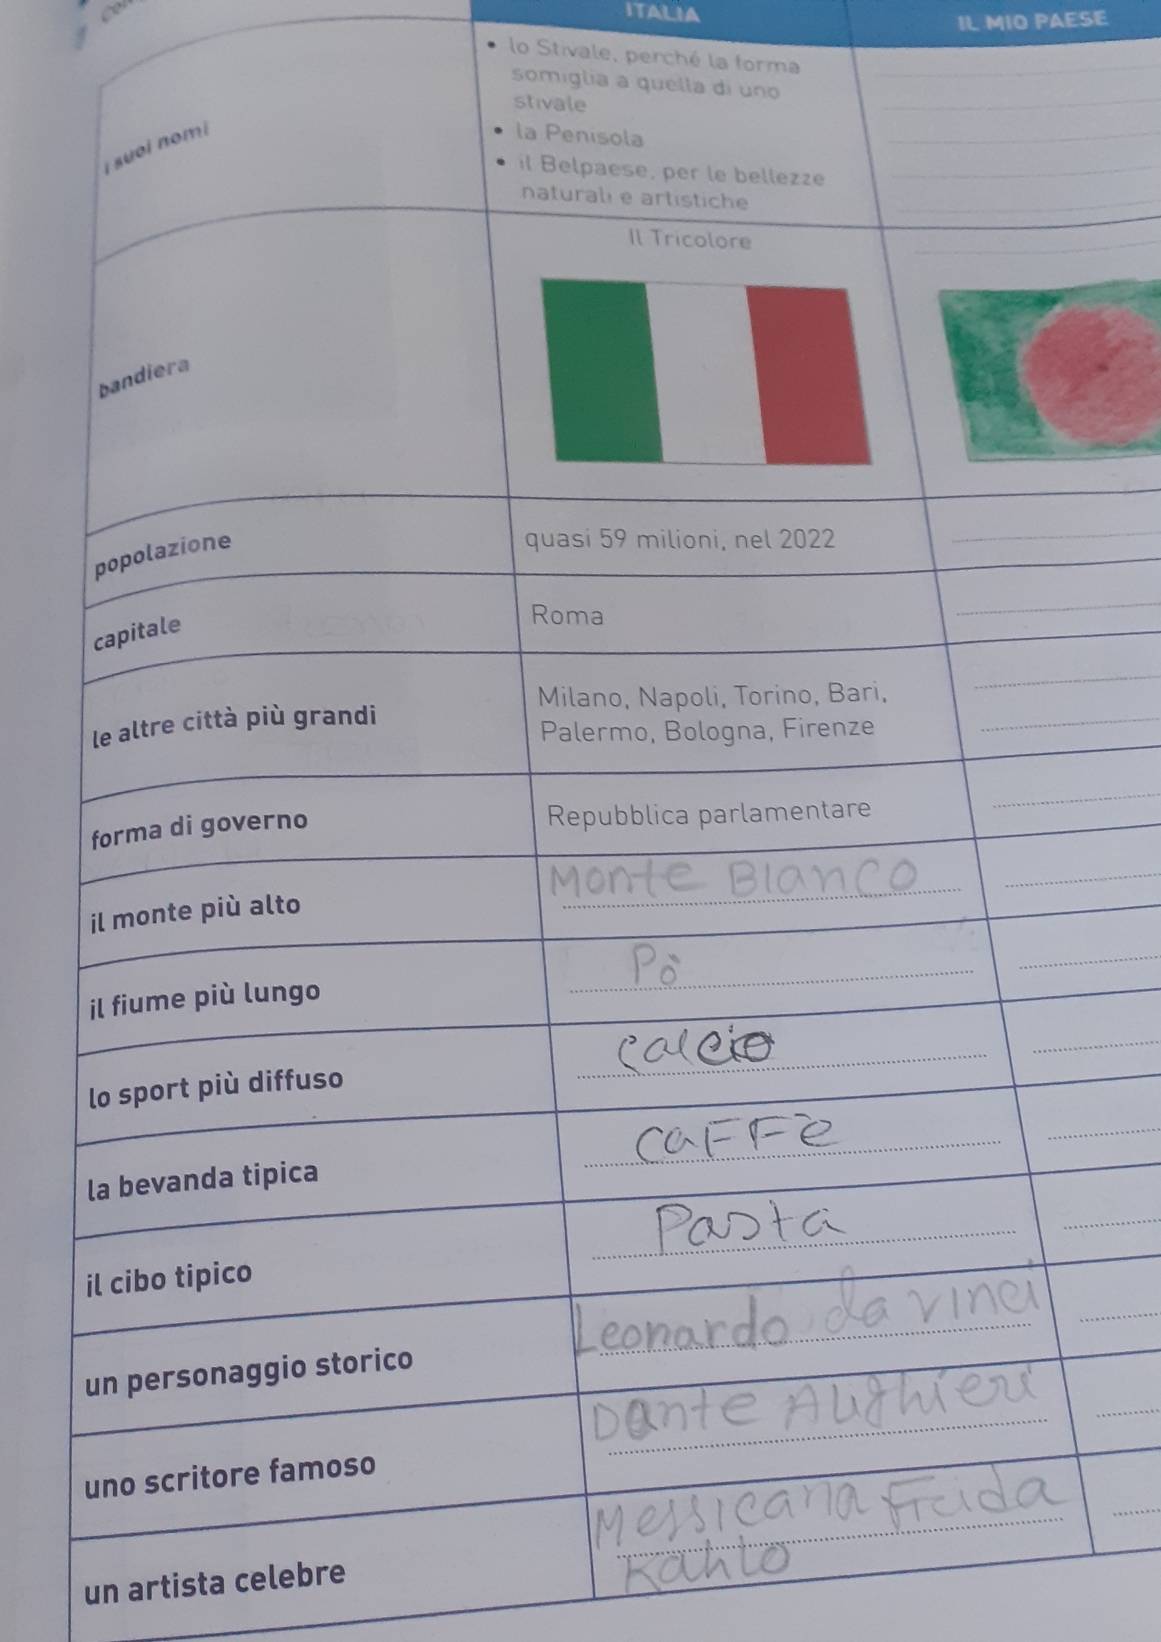 ITALIA
IL MIO PAESE
i suoi nomi
• lo Stivale, perché la forma
somiglia a quella di uno
stivale
• la Penisola
• il Belpaese, per le bellezze
naturali e artistiche
bandiera
Il Tricolore
popolazione
quasi 59 milioni, nel 2022
capitale
Roma
le altre città più grandi
Milano, Napoli, Torino, Bari,
Palermo, Bologna, Firenze
forma di governo
Repubblica parlamentare
il monte più alto
Monte Blanco
il fiume più lungo
Pò
lo sport più diffuso
calcio
la bevanda tipica
caFFè
il cibo tipico
Pasta
un personaggio storico
Leonardo da vinci
uno scritore famoso
Dante Alighieri
un artista celebre
Messicana Frida
Kahlo